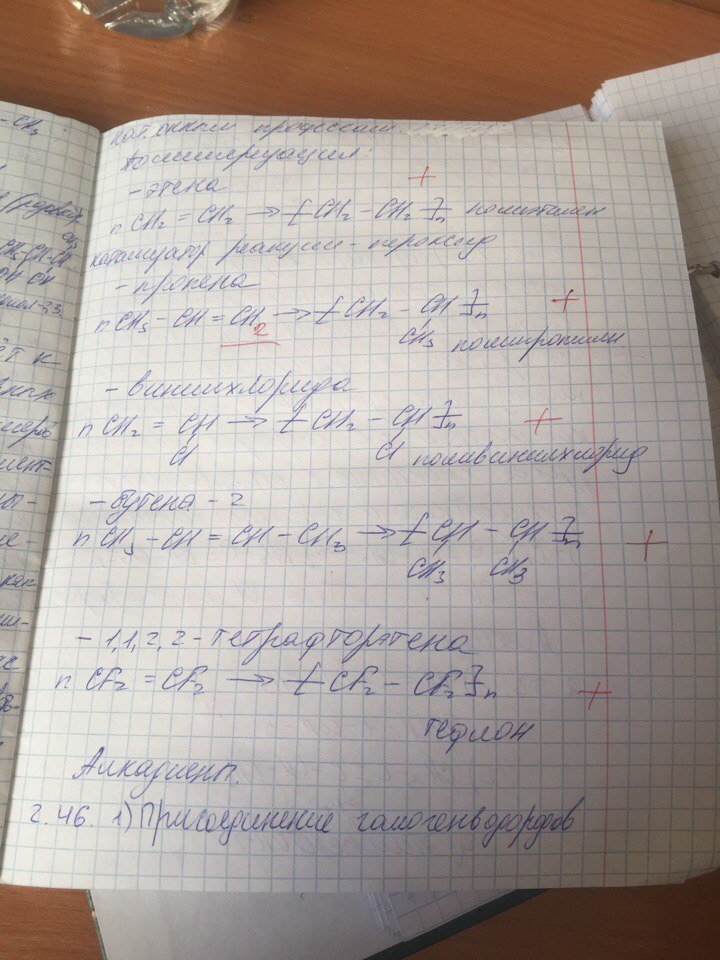 процессам.
Полимеризация:
- этена +
n CH₂ = CH₂ → [-CH₂ - CH₂-]n полиэтилен
катализатор реакции - пероксид
- пропена
n CH₃ - CH = CH₂ → [-CH₂ - CH-]n +
CH₃ полипропилен
- винилхлорида
n CH₂ = CH → [-CH₂ - CH-]n +
Cl Cl поливинилхлорид
- бутена - 2
n CH₃ - CH = CH - CH₃ → [-CH - CH-]n +
CH₃ CH₃
- 1,1,2,2 - тетрафторэтена
n CF₂ = CF₂ → [-CF₂ - CF₂-]n +
тефлон
Алкадиены.
2.46. 1) Присоединение галогенводородов